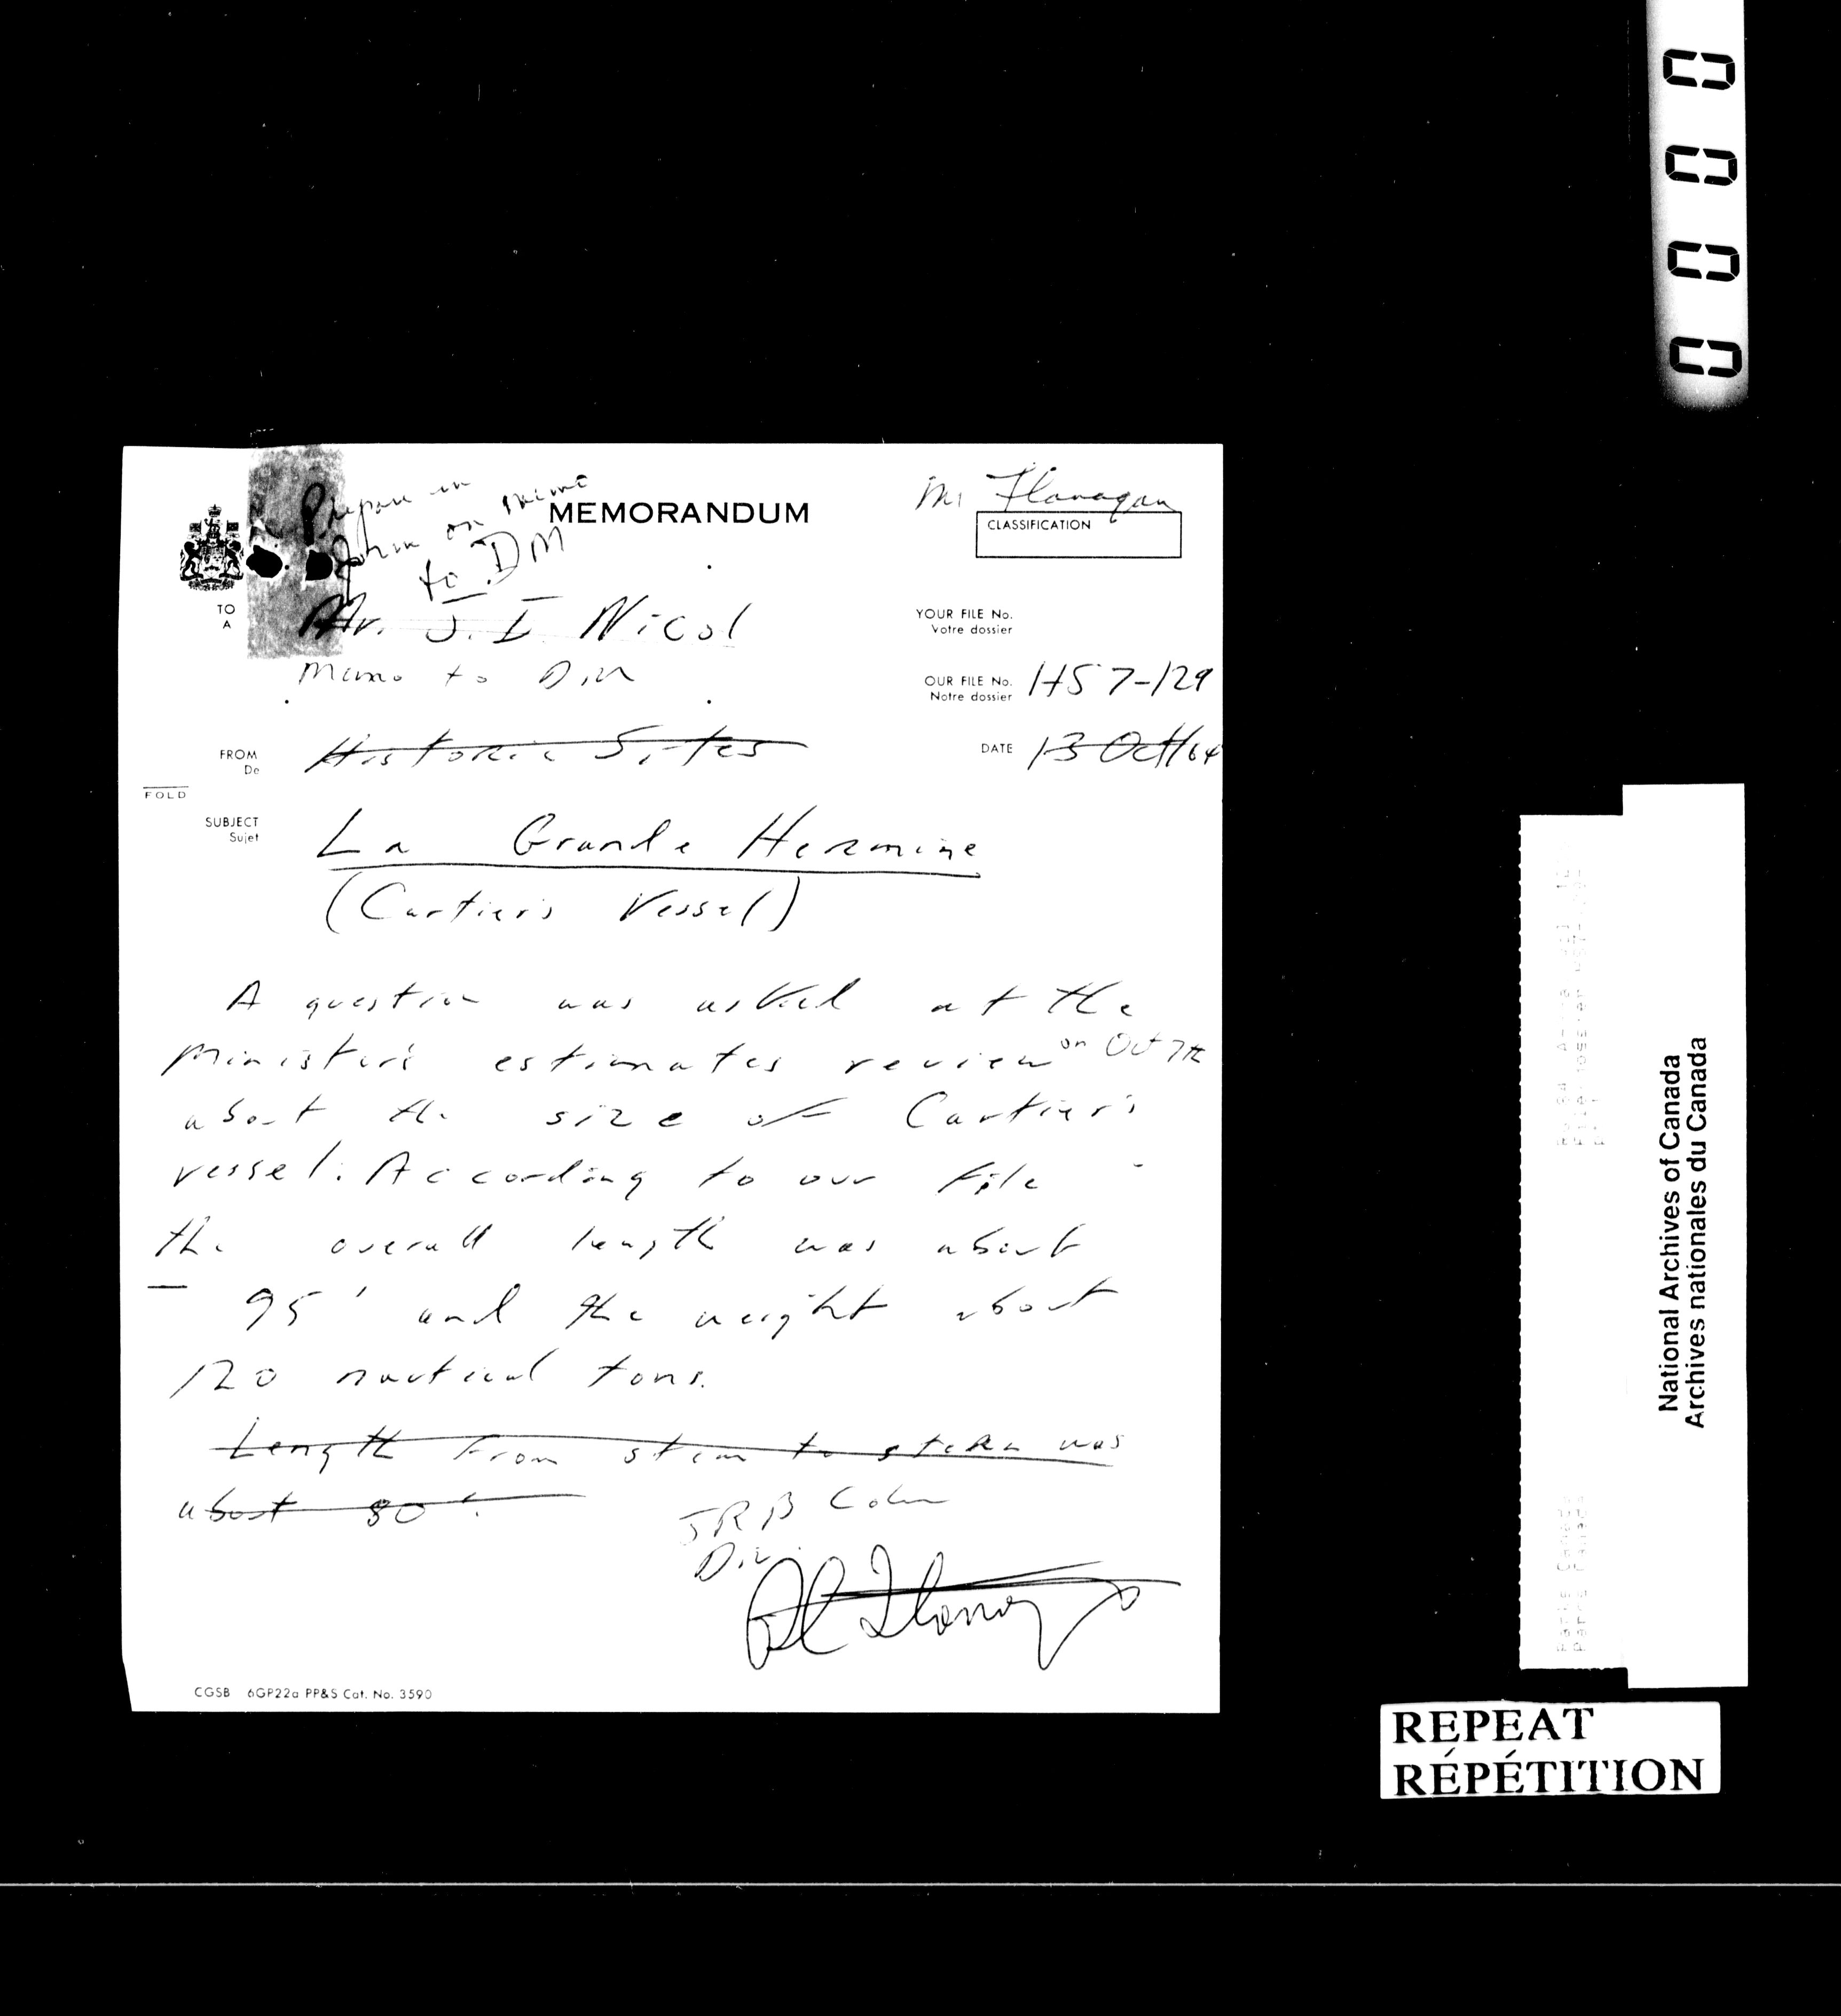 Prepare in
form on memo
to DM
MEMORANDUM
Mr Flanagan
CLASSIFICATION
TO
A
Mr. J. I. Nicol
Memo to DM
YOUR FILE No.
Votre dossier
OUR FILE No.
Notre dossier
HS 7-129
FROM
De
Historic Sites
DATE
13 Oct/64
FOLD
SUBJECT
Sujet
La Grande Hermine
(Cartier's Vessel)
A question was asked at the
Minister's estimates review on Oct 7th
about the size of Cartier's
vessel. According to our file
the overall length was about
95' and the weight about
120 nautical tons.
Length from stem to stern was
about 80'.
JRB Coleman
Dir.
CGSB 6GP22a PP&S Cat. No. 3590
0000
National Archives of Canada
Archives nationales du Canada
Parks Canada
Parcs Canada
REPEAT
RÉPÉTITION